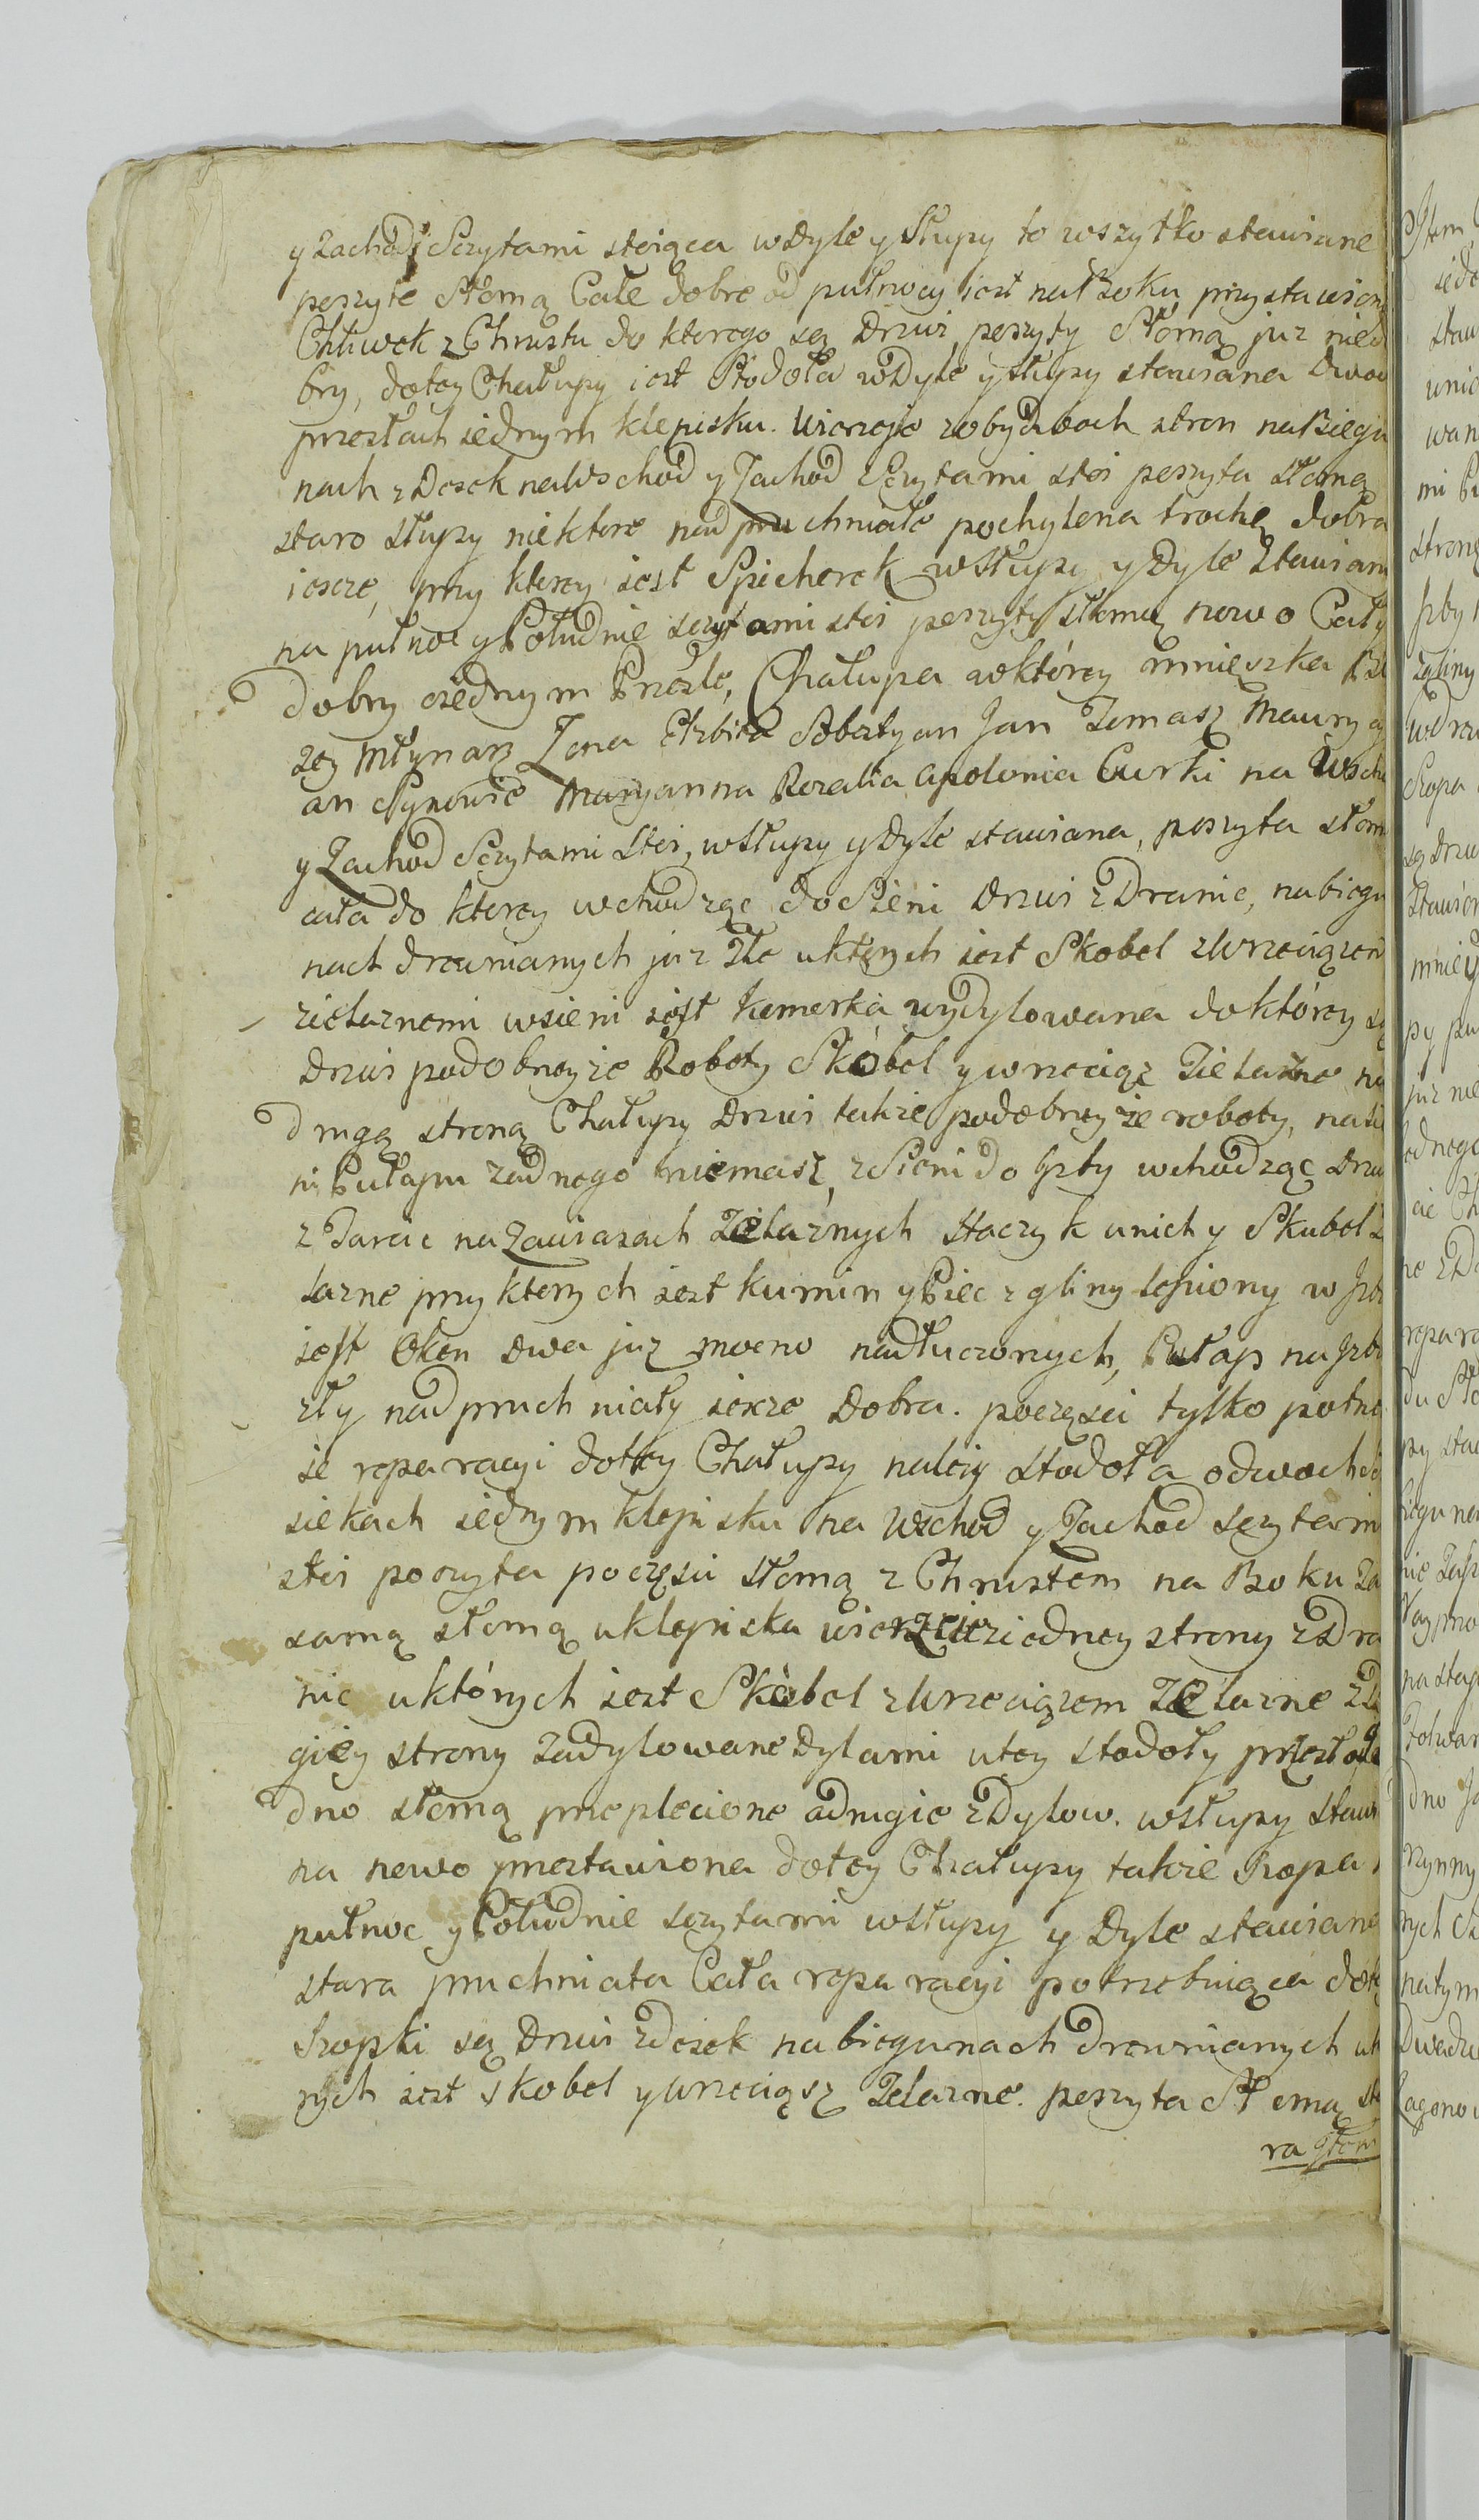 y Zachod Sczytami stoiąca w Dyle y Słupy to wszytko stawiane
poszyte Słomą Całe dobre od pułnocy iest na Boku przystawion
Chliwek z Chrustu do ktorego są Drzwi poszyty Słomą juz niedo
bry, do tey Chałupy iest Stodoła w Dyle y słupy stawiana Dwoch
przesłach iednym klepisku. Wierzeje z obydwoch stron na Biegu
nach z Desek na Wschod y Zachod Sczytami stoi poszyta słomą
staro słupy niektore nad pruchniałe pochylona trochę dobra
iescze, przy ktorey iest Spicherek w Słupy y Dyle Stawiany
na pułnoc y Południe sczytami stoi poszyty słomą nowo Cały
dobry o iednym Przęśle, Chałupa w którey mnieszka
Młynarz Zona Elzbieta Sobestyan Jan Tomasz Maury cy
an Synowie Maryanna Rozalia Apolonia Curki na Wscho
y Zachod Sczytami stoi, w Słupy y Dyle stawiana, poszyta słom
cała do ktorey wchodząc do Sieni Drzwi z Dranic, na biegu
nach drewnianych juz złe u ktorych iest Skobel z Wrzeciązem
zielaznemi w sieni iest komorka wydylowana do którey są
Drzwi podobney ze Roboty Skobel y wrzeciąz Zielazne na
drugą stroną Chałupy Drzwi takze podobney ze roboty, na sie
ni Pułapu zadnego niemasz, z Sieni do Jzby wchodząc Drzwi
z Tarcic na Zawiasach Zelaznych Haczyk u nich y Skubel Ze
lazne przy ktorych iest kumin y Piec z gliny lepiony w Jzbi
iest Oken dwa juz mocno nadtłuczonych, Pułap na Jzbi
zły nadpruchniały iescze Dobra. poczęsci tylko potrze
ie reparacyi do tey Chałupy nalezy stodoła o dwoch są
siekach iednym klepisku na Wschod y Zachod sczytami
stoi poszyta poczęsci słomą z Chrustem na Boku za
samą słomą u klepiska wierzeie z iedney strony z Dra
nic u których iest Skobel z Wrzeciązem Zelazne z Dru
giey strony zadylowane dylami u tey stodoły przęsło ie
dno słomą przeplecione a drugie z Dylow. w słupy stawi
na nowo przestawiona do tey Chałupy takze Szopa n
pułnoc y Południe sczytami w słupy y Dyle stawiana
stara pruchniała Cała reparacyi potrzebuiąca do tey
Szopki są Drzwi z desek na biegunach drewnianych u kt
rych iest skobel y wrzeciąsz Zelazne. poszyta Słomą sta
ra Jtem